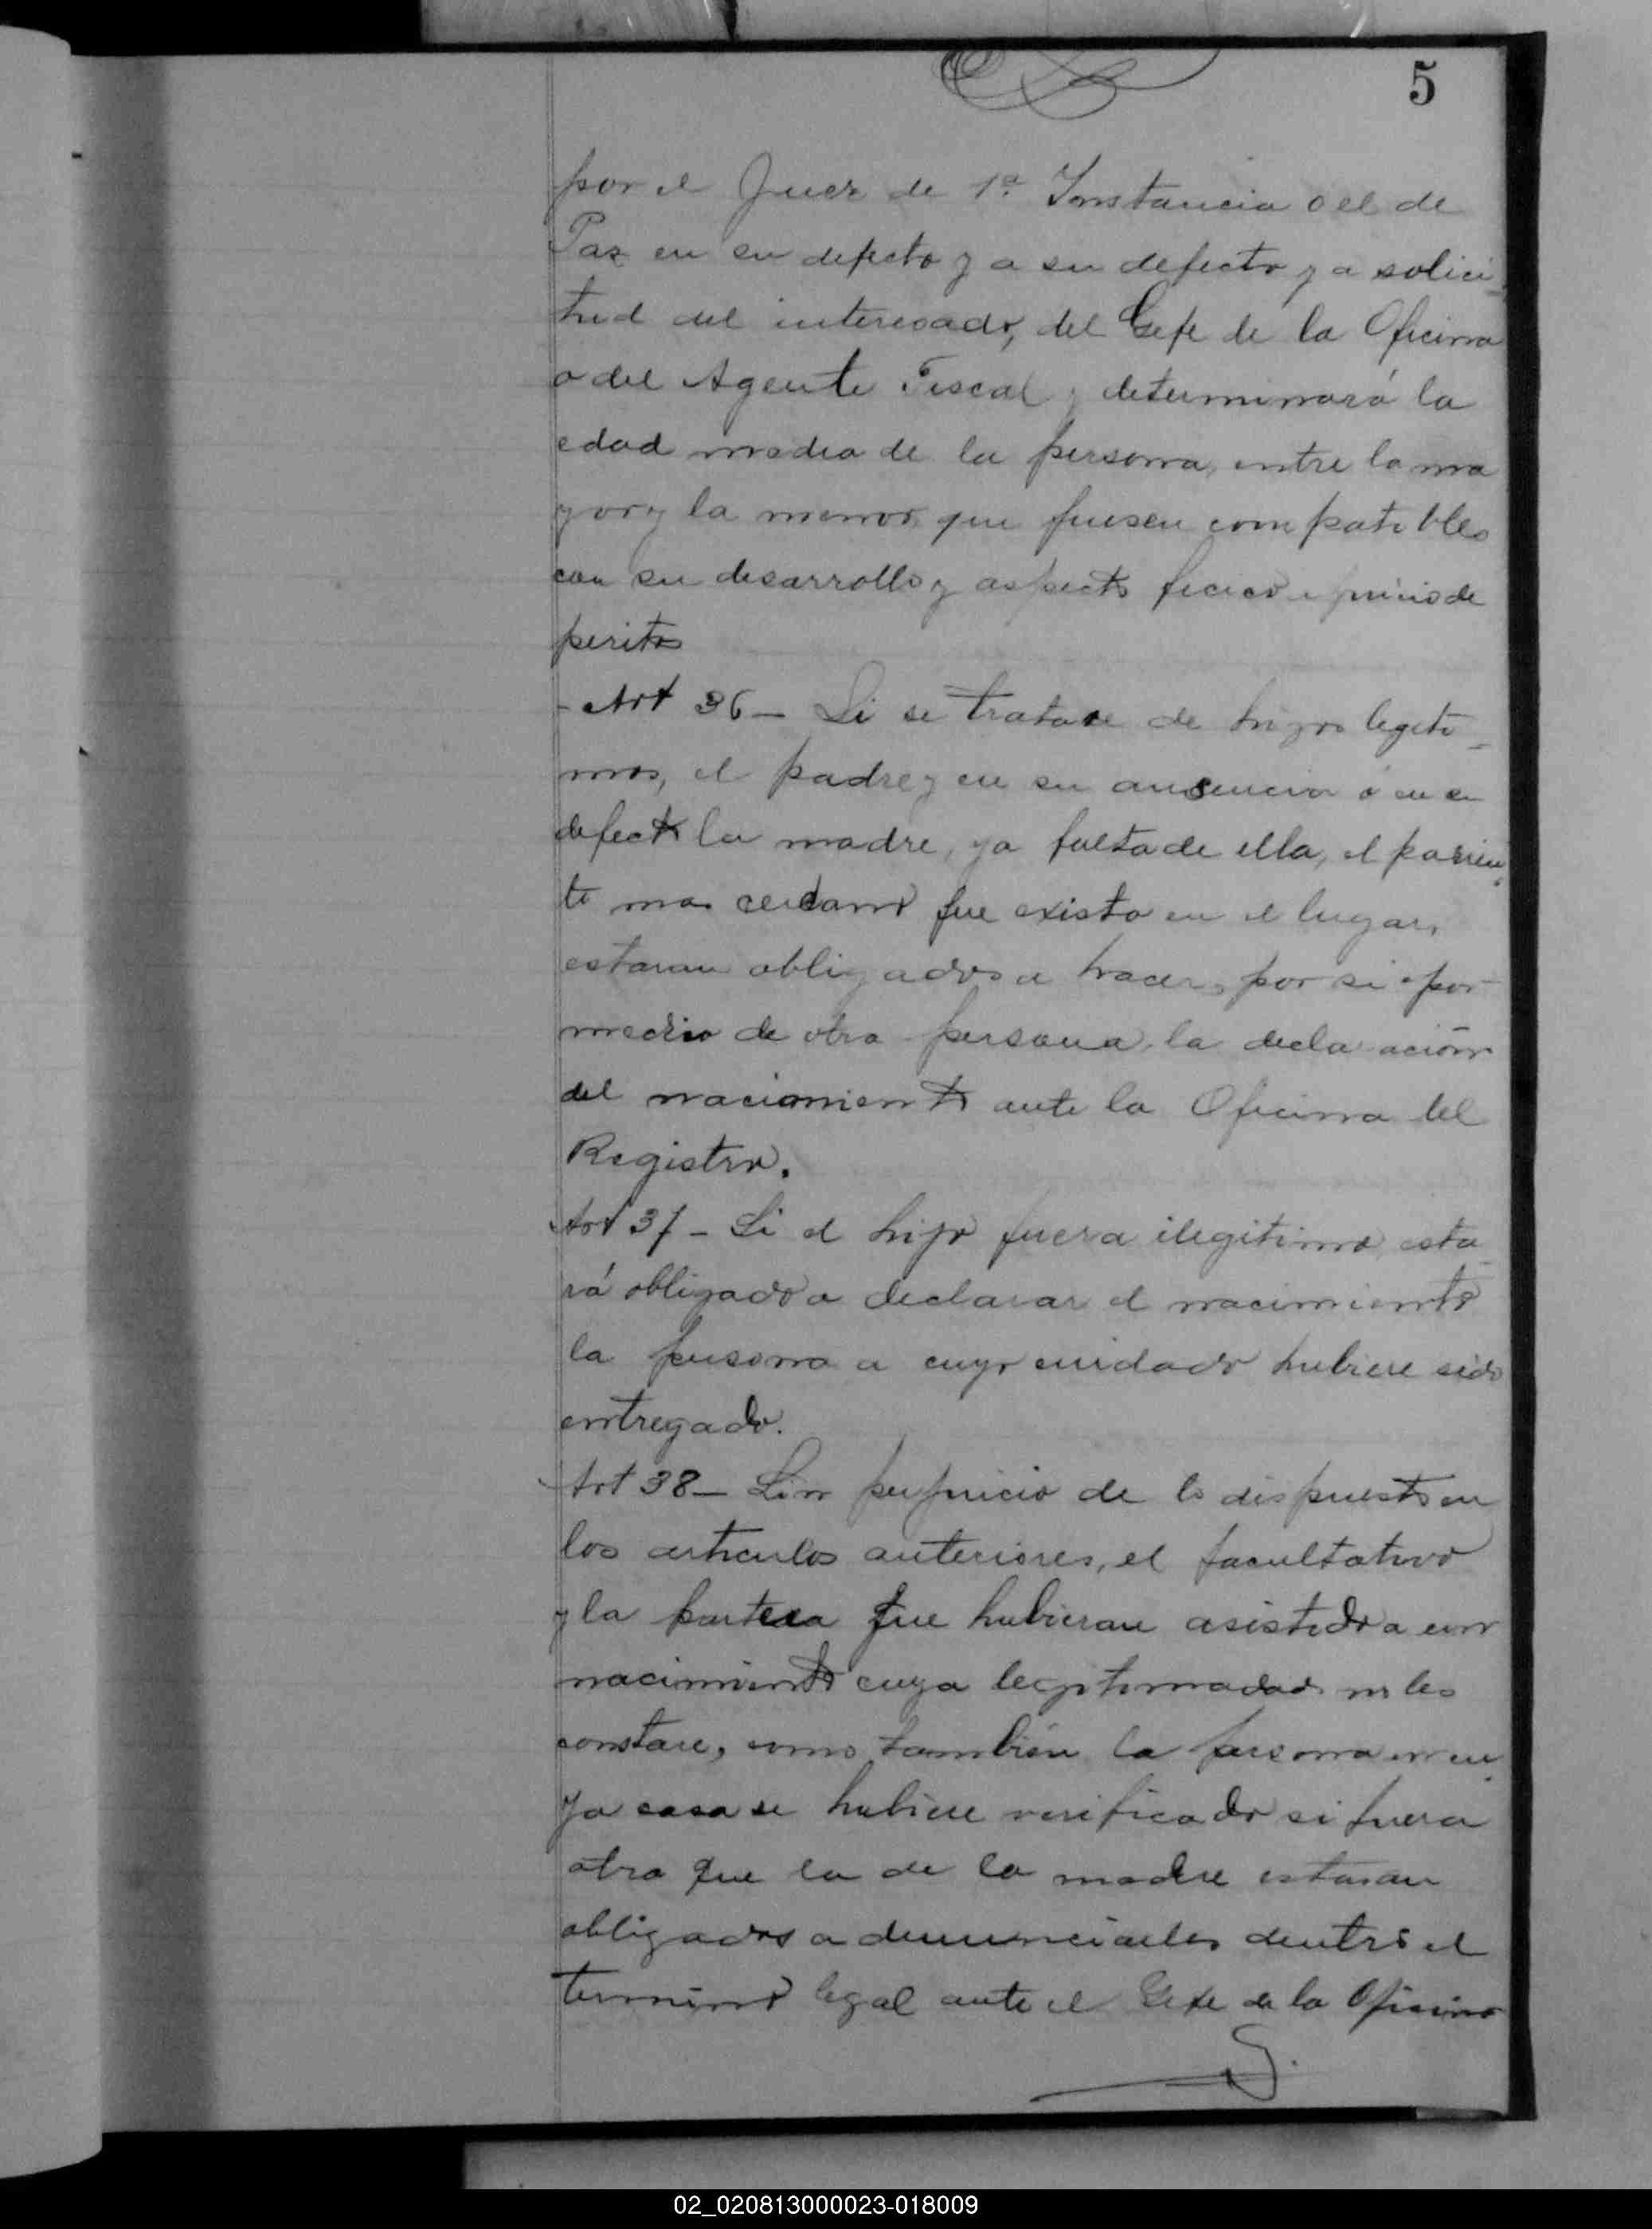 5
por el Juez de 1ª Instancia o el de
Paz en su defecto y a su defecto y a solici-
tud del interesado, del Gefe de la Oficina
o del Agente Fiscal y determinará la
edad media de la persona, entre la ma
yor y la menor que fuesen compatibles
con su desarrollo y aspecto ficico a juicio de
peritos
- Art 36 - Si se tratase de hijos legiti-
mos, el padre y en su ausencia ó en su
defecto la madre, y a falta de ella, el parien-
te mas cercano que exista en el lugar,
estaran obligados a hacer, por si o por
medio de otra persona, la declaración
del nacimiento ante la Oficina del
Registro.
Art 37 - Si el hijo fuera ilegitimo esta
rá obligado a declarar el nacimiento
la persona a cuyo cuidado hubiere sido
entregado.
Art 38 - Sin perjuicio de lo dispuesto en
los articulos anteriores, el facultativo
y la partera que hubieran asistido a un
nacimiento cuya legitimadad no les
constare, como tambien la persona en cu-
ya casa se hubiere verificado si fuera
otra que la de la madre estaran
obligados a denunciarlos dentro el
termino legal ante el Gefe de la Oficina
02_020813000023-018009